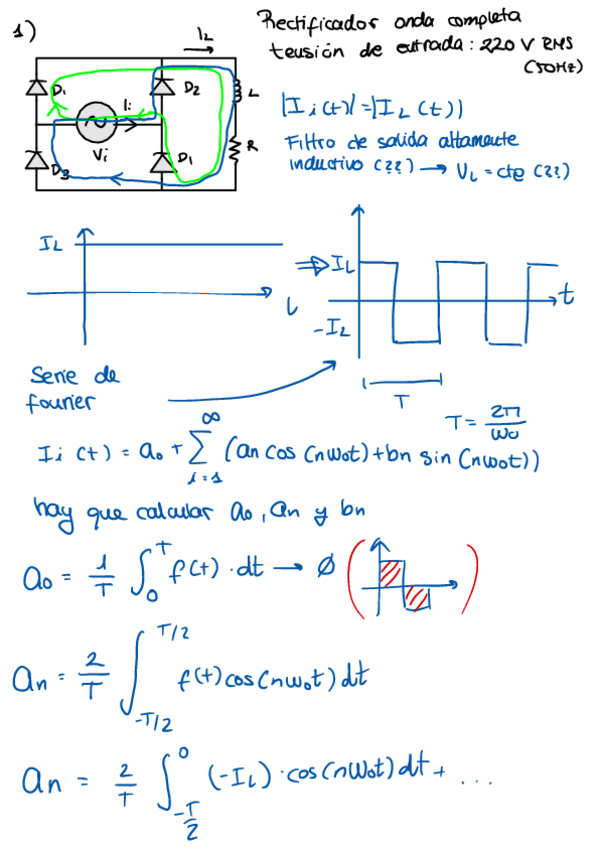 1)
Rectificador onda completa
tensión de entrada: 220 V RMS
(50Hz)
IL
D1
D2
L
Ii
Vi
R
D3
D1
|Ii(t)|=|IL(t)|
Filtro de salida altamente
inductivo (??) → VL = cte (??)
IL
⇒ IL
-IL
t
T
T = 2π/ω0
Serie de
fourier
Ii (t) = a0 + ∑ i=1 ∞ (an cos (nω0t) + bn sin (nω0t))
hay que calcular a0, an y bn
a0 = 1/T ∫ 0 T f(t) · dt → ∅
an = 2/T ∫ -T/2 T/2 f(t) cos(nω0t) dt
an = 2/T ∫ -T/2 0 (-IL) · cos(nω0t) dt + ...